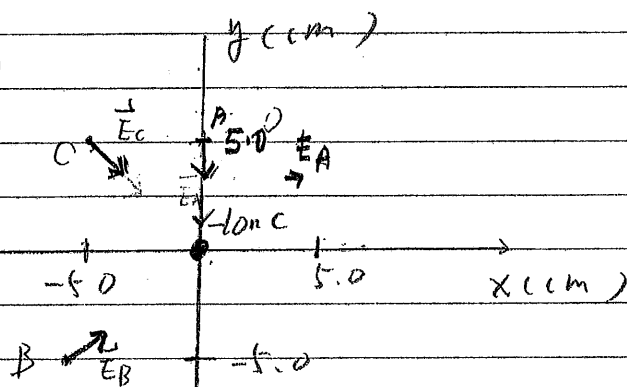 y (cm)
E_C A 5.0 E_A
C
E_A
-10nC
-5.0 5.0 x (cm)
B E_B -5.0